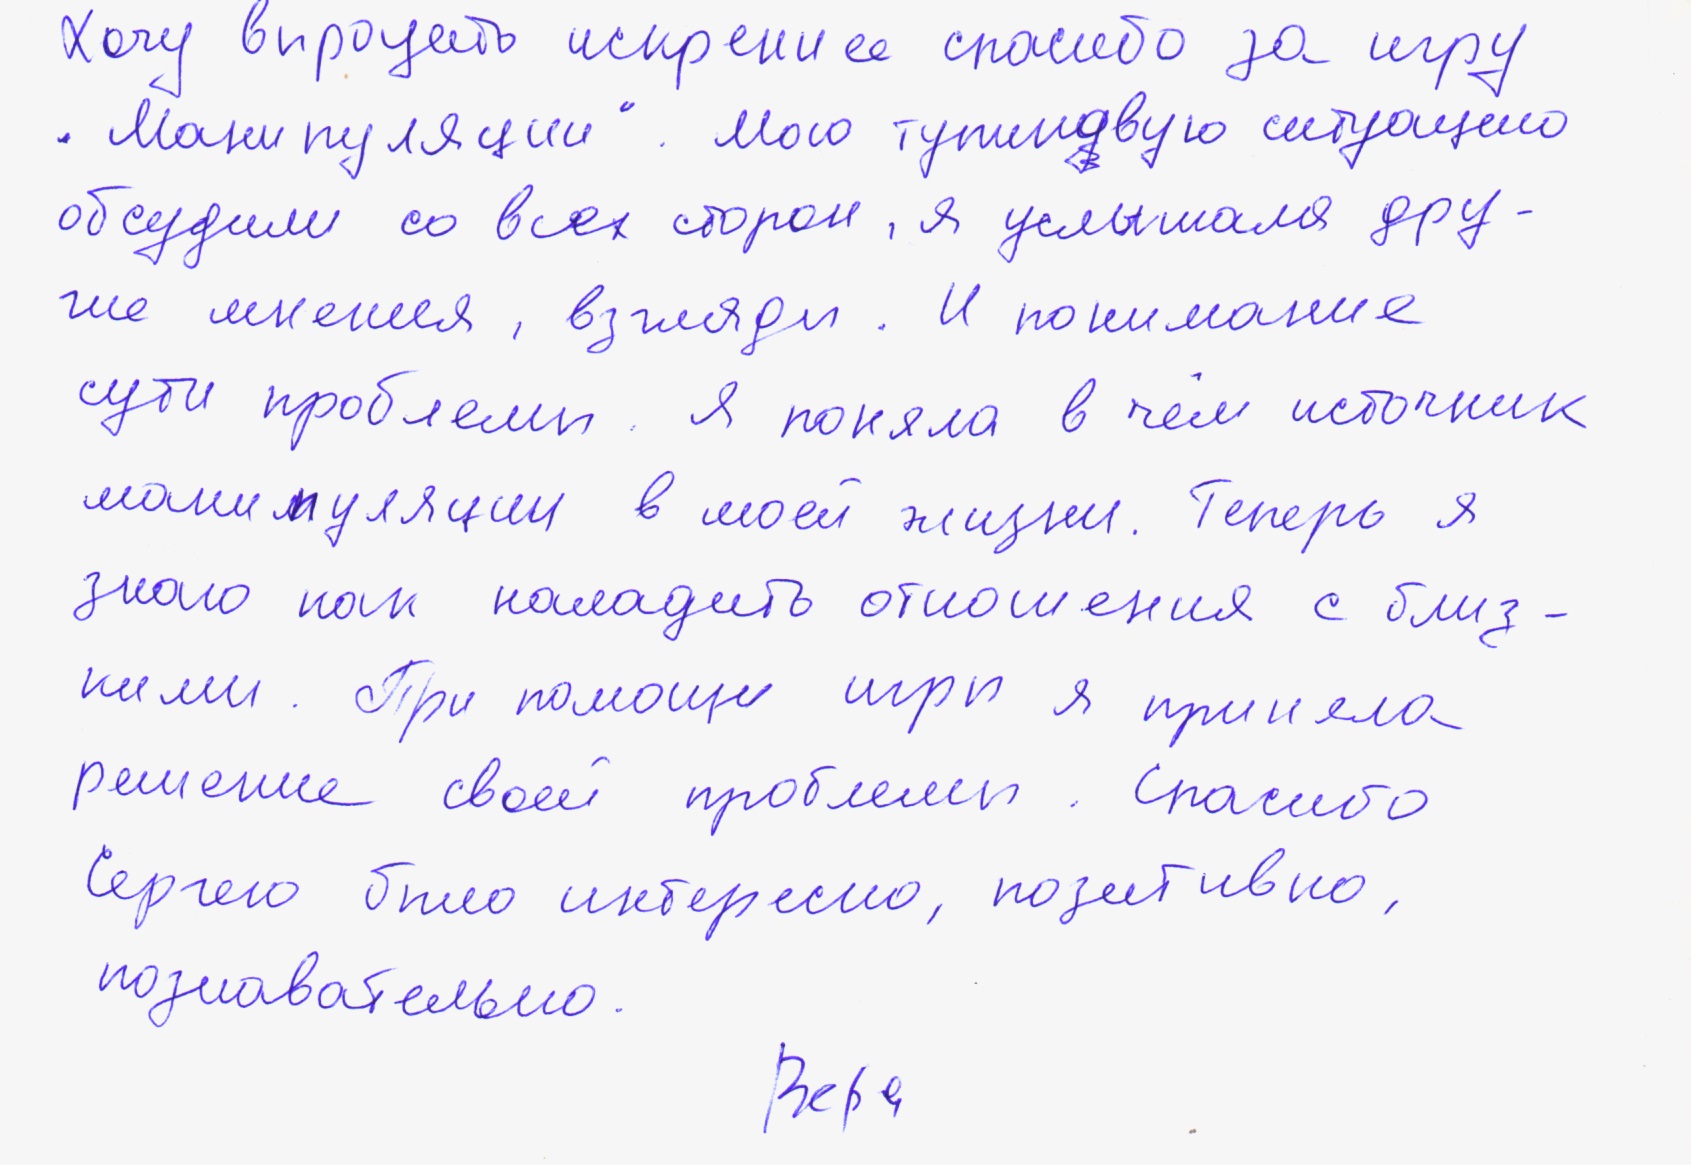 Хочу выразить искреннее спасибо за игру
„Манипуляции". Мою тупиковую ситуацию
обсудили со всех сторон, я услышала дру-
гие мнения, взгляды. И понимание
сути проблемы. Я поняла в чём источник
манипуляции в моей жизни. Теперь я
знаю как наладить отношения с близ-
кими. При помощи игры я приняла
решение своей проблемы. Спасибо
Сергею было интересно, позитивно,
познавательно.
Вера